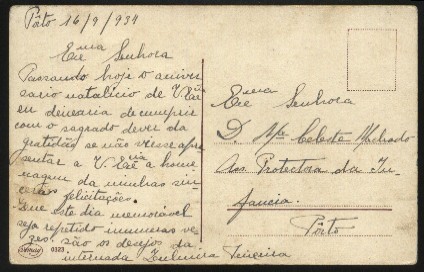 Pôrto 16/9/934
Exma
Senhora
Passando hoje o aniver
sario natalício de V. Exª
eu deixaria de cumprir
com o sagrado dever da
gratidão se não viesse apre
sentar a V. Exª a home
nagem da minhas sin
ceras felicitações.
Que este dia memorável
seja repetido inumeras ve
zes. são os desejos da
internada Zulmira Teixeira
0323
Exma
Senhora
D. Mª Celeste Machado
Protectora da In-
fancia.
Porto